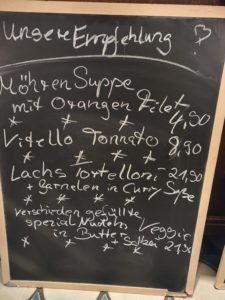 Unsere Empfehlung
Möhren Suppe
mit Orangen Filet
4,90
* * *
Vitello Tonnato 8,90
* * *
Lachs Tortelloni 21,90
+ Garnelen in Curry Soße
* * *
verschieden gefüllte
spezial Nudeln Veggie
in Butter
+ Salbei 21,90
* * *